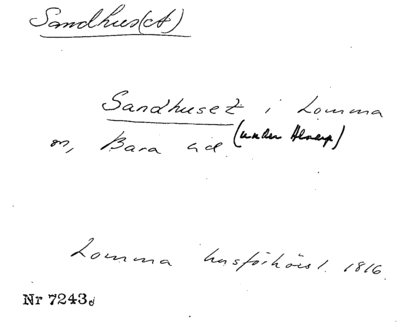 Sandhus(et)
Sandhuset i Lomma
sn, Bara hd. (under Alnarp)
Lomma husförhörsl. 1816.
Nr 7243d